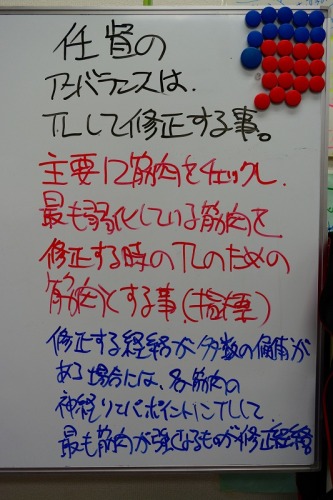 任督の
アンバランスは、
TLして修正する事。
主要12筋肉をチェックし、
最も弱化している筋肉を
修正する時のTLのための
筋肉とする事。(指標)
修正する経絡が多数の候補が
ある場合には、各筋肉の
神経リンパポイントにTLして、
最も筋肉が強くなるものが修正経絡。